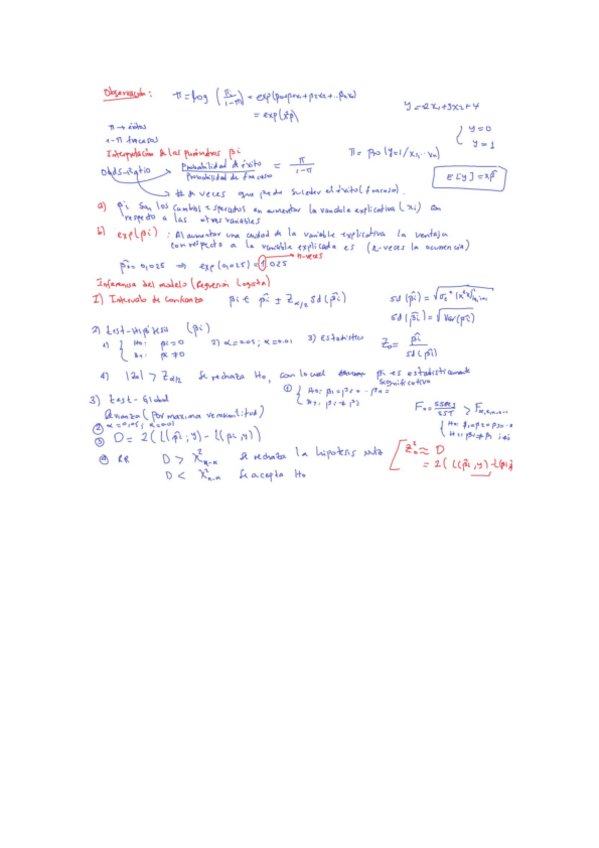 Observación: π = log (π/1-π) = exp(β0+β1x1+β2x2+..βnxn)
= exp(xβ)
y = 2x1+3x2+4
{ y=0
y=1
π → éxitos
1-π fracasos
Interpretación de los parámetros βi
π = Pro(y=1/x1,..xn)
E[y] = xβ
Odds-Ratio → Probabilidad de éxito / Probabilidad de fracaso = π / 1-π
→ # de veces que puede suceder el éxito (fracaso).
a) βi son los cambios esperados en aumentar la variable explicativa (xi) con
respecto a las otras variables
b) exp(βi) : Al aumentar una unidad de la variable explicativa la ventaja
con respecto a la variable explicada es (n-veces la ocurrencia)
→ n-veces
β1 = 0,025 ⇒ exp(0,025) = 1.025
Inferencia del modelo (Regresión Logística)
1) Intervalo de confianza βi ∈ β̂i ± Zα/2 sd(β̂i)
sd(β̂i) =
sd(β̂i) = √Var(β̂i)
2) test-Hipótesis (βi)
1) { H0: βi=0
H1: βi≠0
2) α=0.05; α=0.01
3) Estadístico Z0 = β̂i / sd(β̂i)
4) |Z0| > Zα/2 Se rechaza H0, con lo cual βi es estadísticamente
significativo
3) test-Global
① { H0: β1=β2=..βn=
H1: βi≠βj
Devianza (por maxima verosimilitud)
② α=0,05; α=0.01
③ D = 2(l(β̂i,y) - l(βi,y))
④ RR D > χ² Se rechaza la hipótesis nula
D < χ² Se acepta H0
[ Z0² ≈ D
= 2(l(β̂i,y)-l(βi